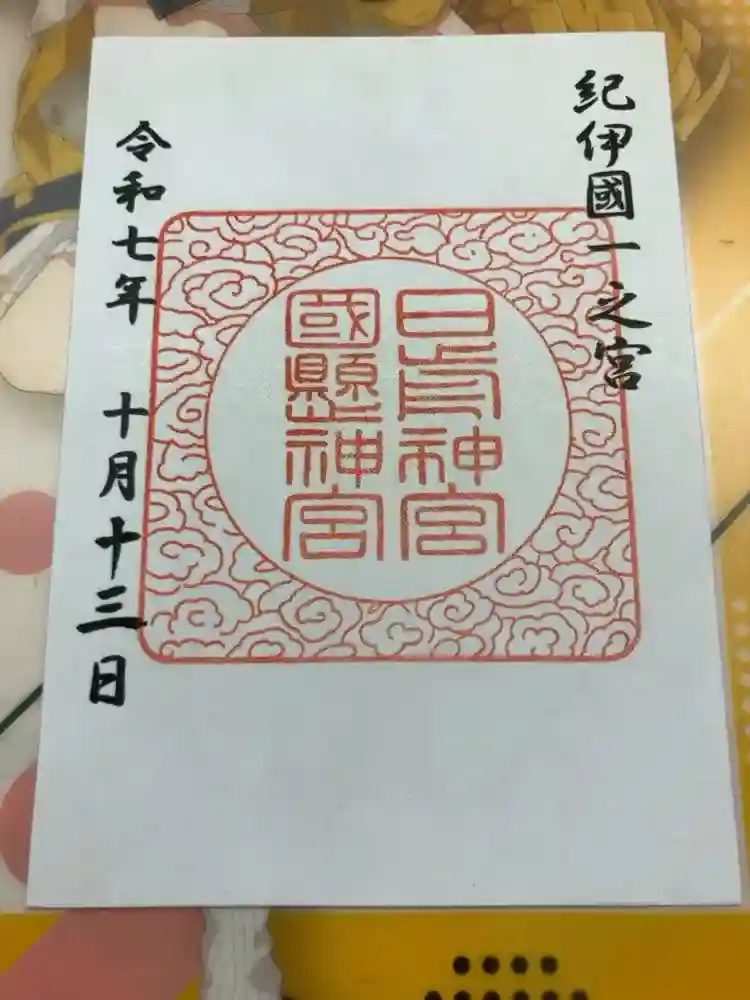 紀伊國一之宮
日前神宮
國懸神宮
令和七年 十月十三日